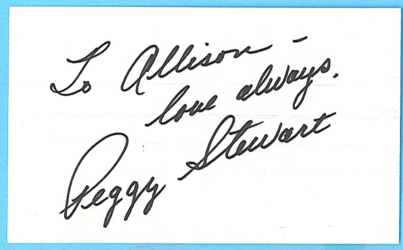 To Allison -
love always.
Peggy Stewart